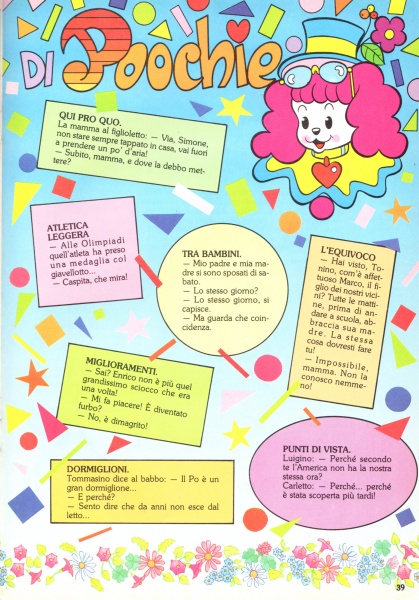 DI Poochie
QUI PRO QUO.
La mamma al figlioletto: — Via, Simone,
non stare sempre tappato in casa, vai fuori
a prendere un po' d'aria!
— Subito, mamma, e dove la debbo met-
tere?
ATLETICA
LEGGERA
— Alle Olimpiadi
quell'atleta ha preso
una medaglia col
giavellotto...
— Caspita, che mira!
TRA BAMBINI.
— Mio padre e mia ma-
dre si sono sposati di sa-
bato.
— Lo stesso giorno?
— Lo stesso giorno, si
capisce.
— Ma guarda che coin-
cidenza.
L'EQUIVOCO
— Hai visto, To-
nino, com'è affet-
tuoso Marco, il fi-
glio dei nostri vici-
ni? Tutte le matti-
ne, prima di an-
dare a scuola, ab-
braccia sua ma-
dre. La stessa
cosa dovresti fare
tu!
— Impossibile,
mamma. Non la
conosco nemme-
no!
MIGLIORAMENTI.
— Sai? Enrico non è più quel
grandissimo sciocco che era
una volta!
— Mi fa piacere! È diventato
furbo?
— No, è dimagrito!
PUNTI DI VISTA.
Luigino: — Perché secondo
te l'America non ha la nostra
stessa ora?
Carletto: — Perché... perché
è stata scoperta più tardi!
DORMIGLIONI.
Tommasino dice al babbo: — Il Po è un
gran dormiglione...
— E perché?
— Sento dire che da anni non esce dal
letto...
39